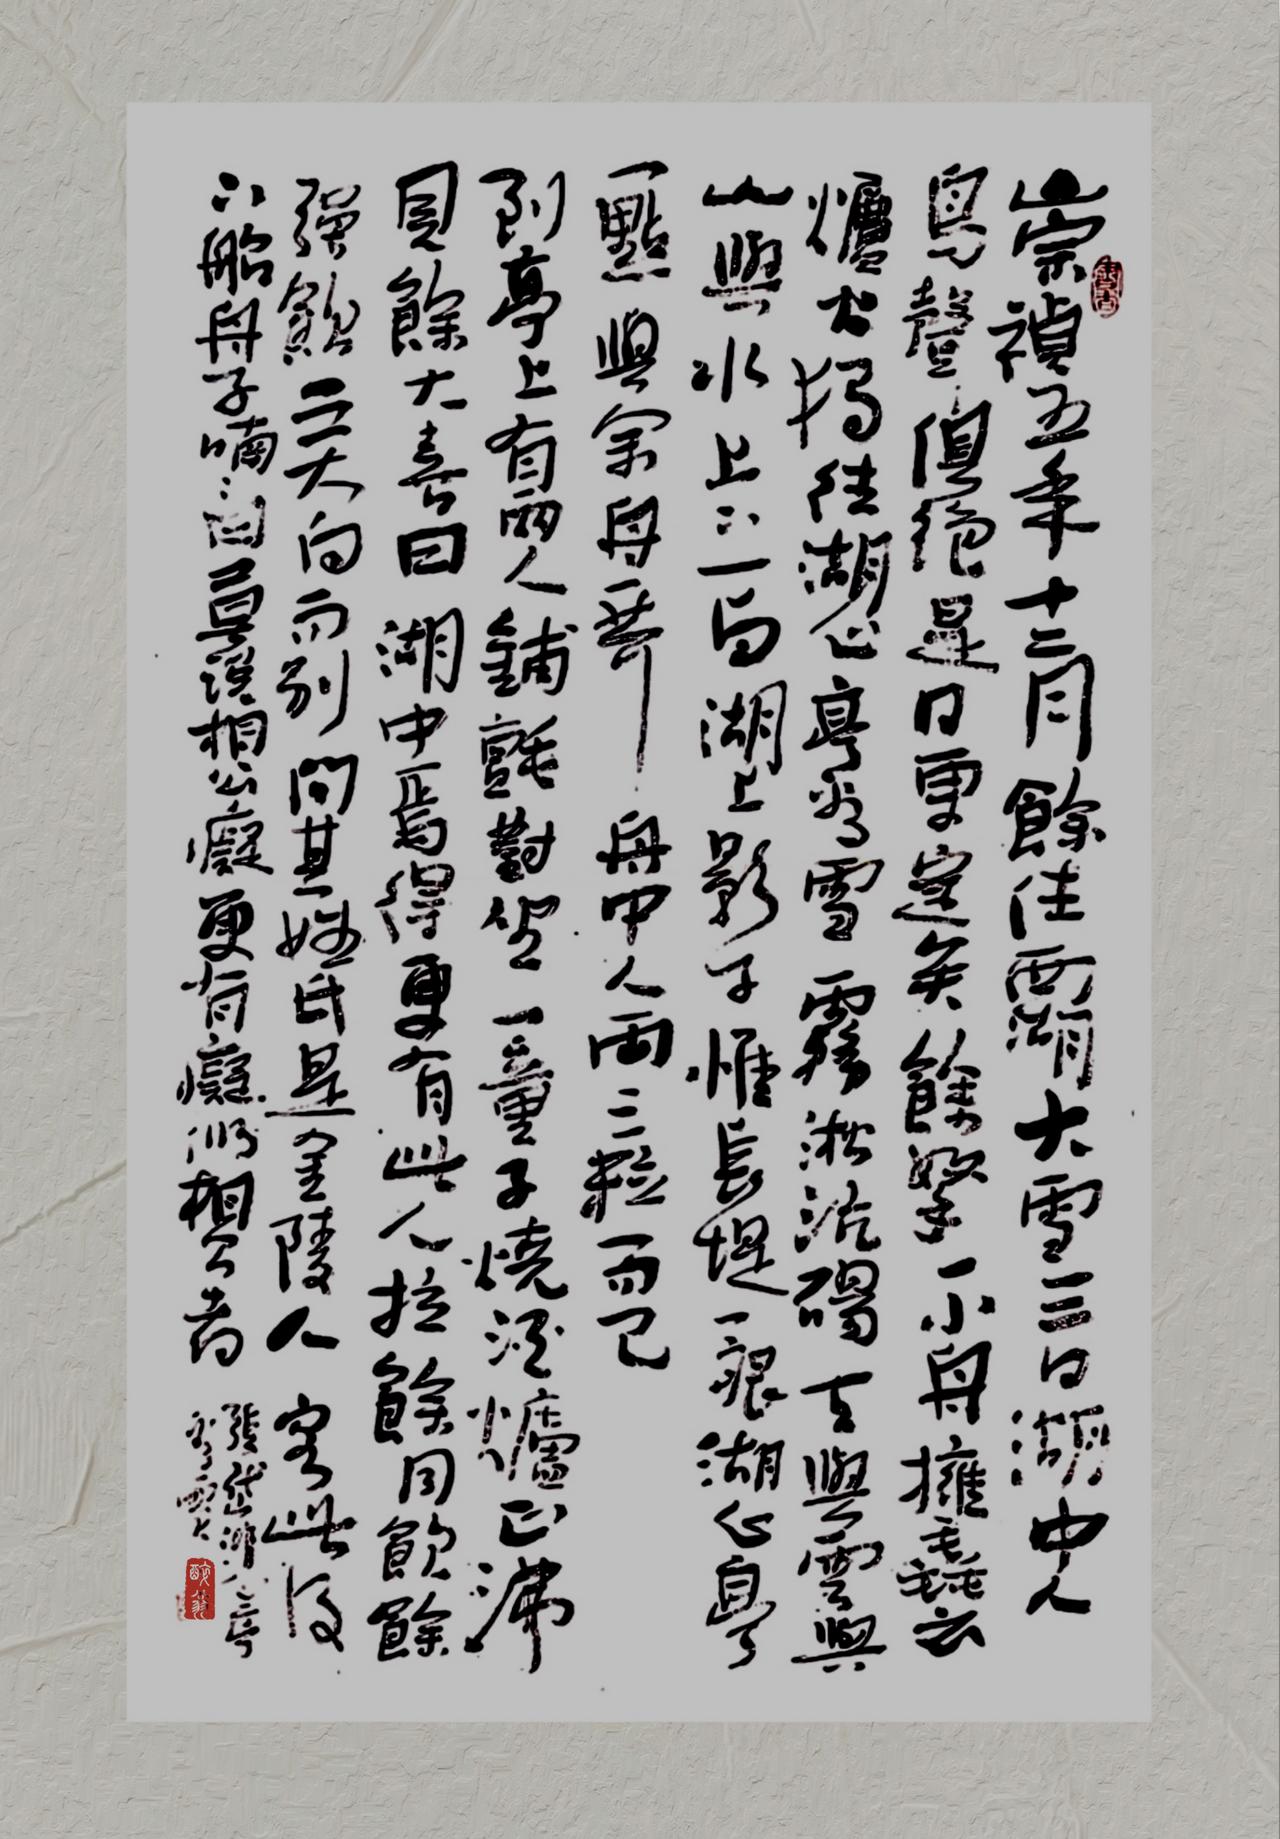 崇禎五年十二月餘住西湖大雪三日湖中人
鳥聲俱絕是日更定矣餘拏一小舟擁毳衣
爐火獨往湖心亭看雪霧淞沆碭天與雲與
山與水上下一白湖上影子惟長堤一痕湖心亭
一點與余舟一芥舟中人兩三粒而已
到亭上有兩人鋪氈對坐一童子燒酒爐正沸
見餘大喜曰湖中焉得更有此人拉餘同飲餘
強飲三大白而別問其姓氏是金陵人客此及
下船舟子喃喃曰莫說相公癡更有癡似相公者
張岱湖心亭
看雪